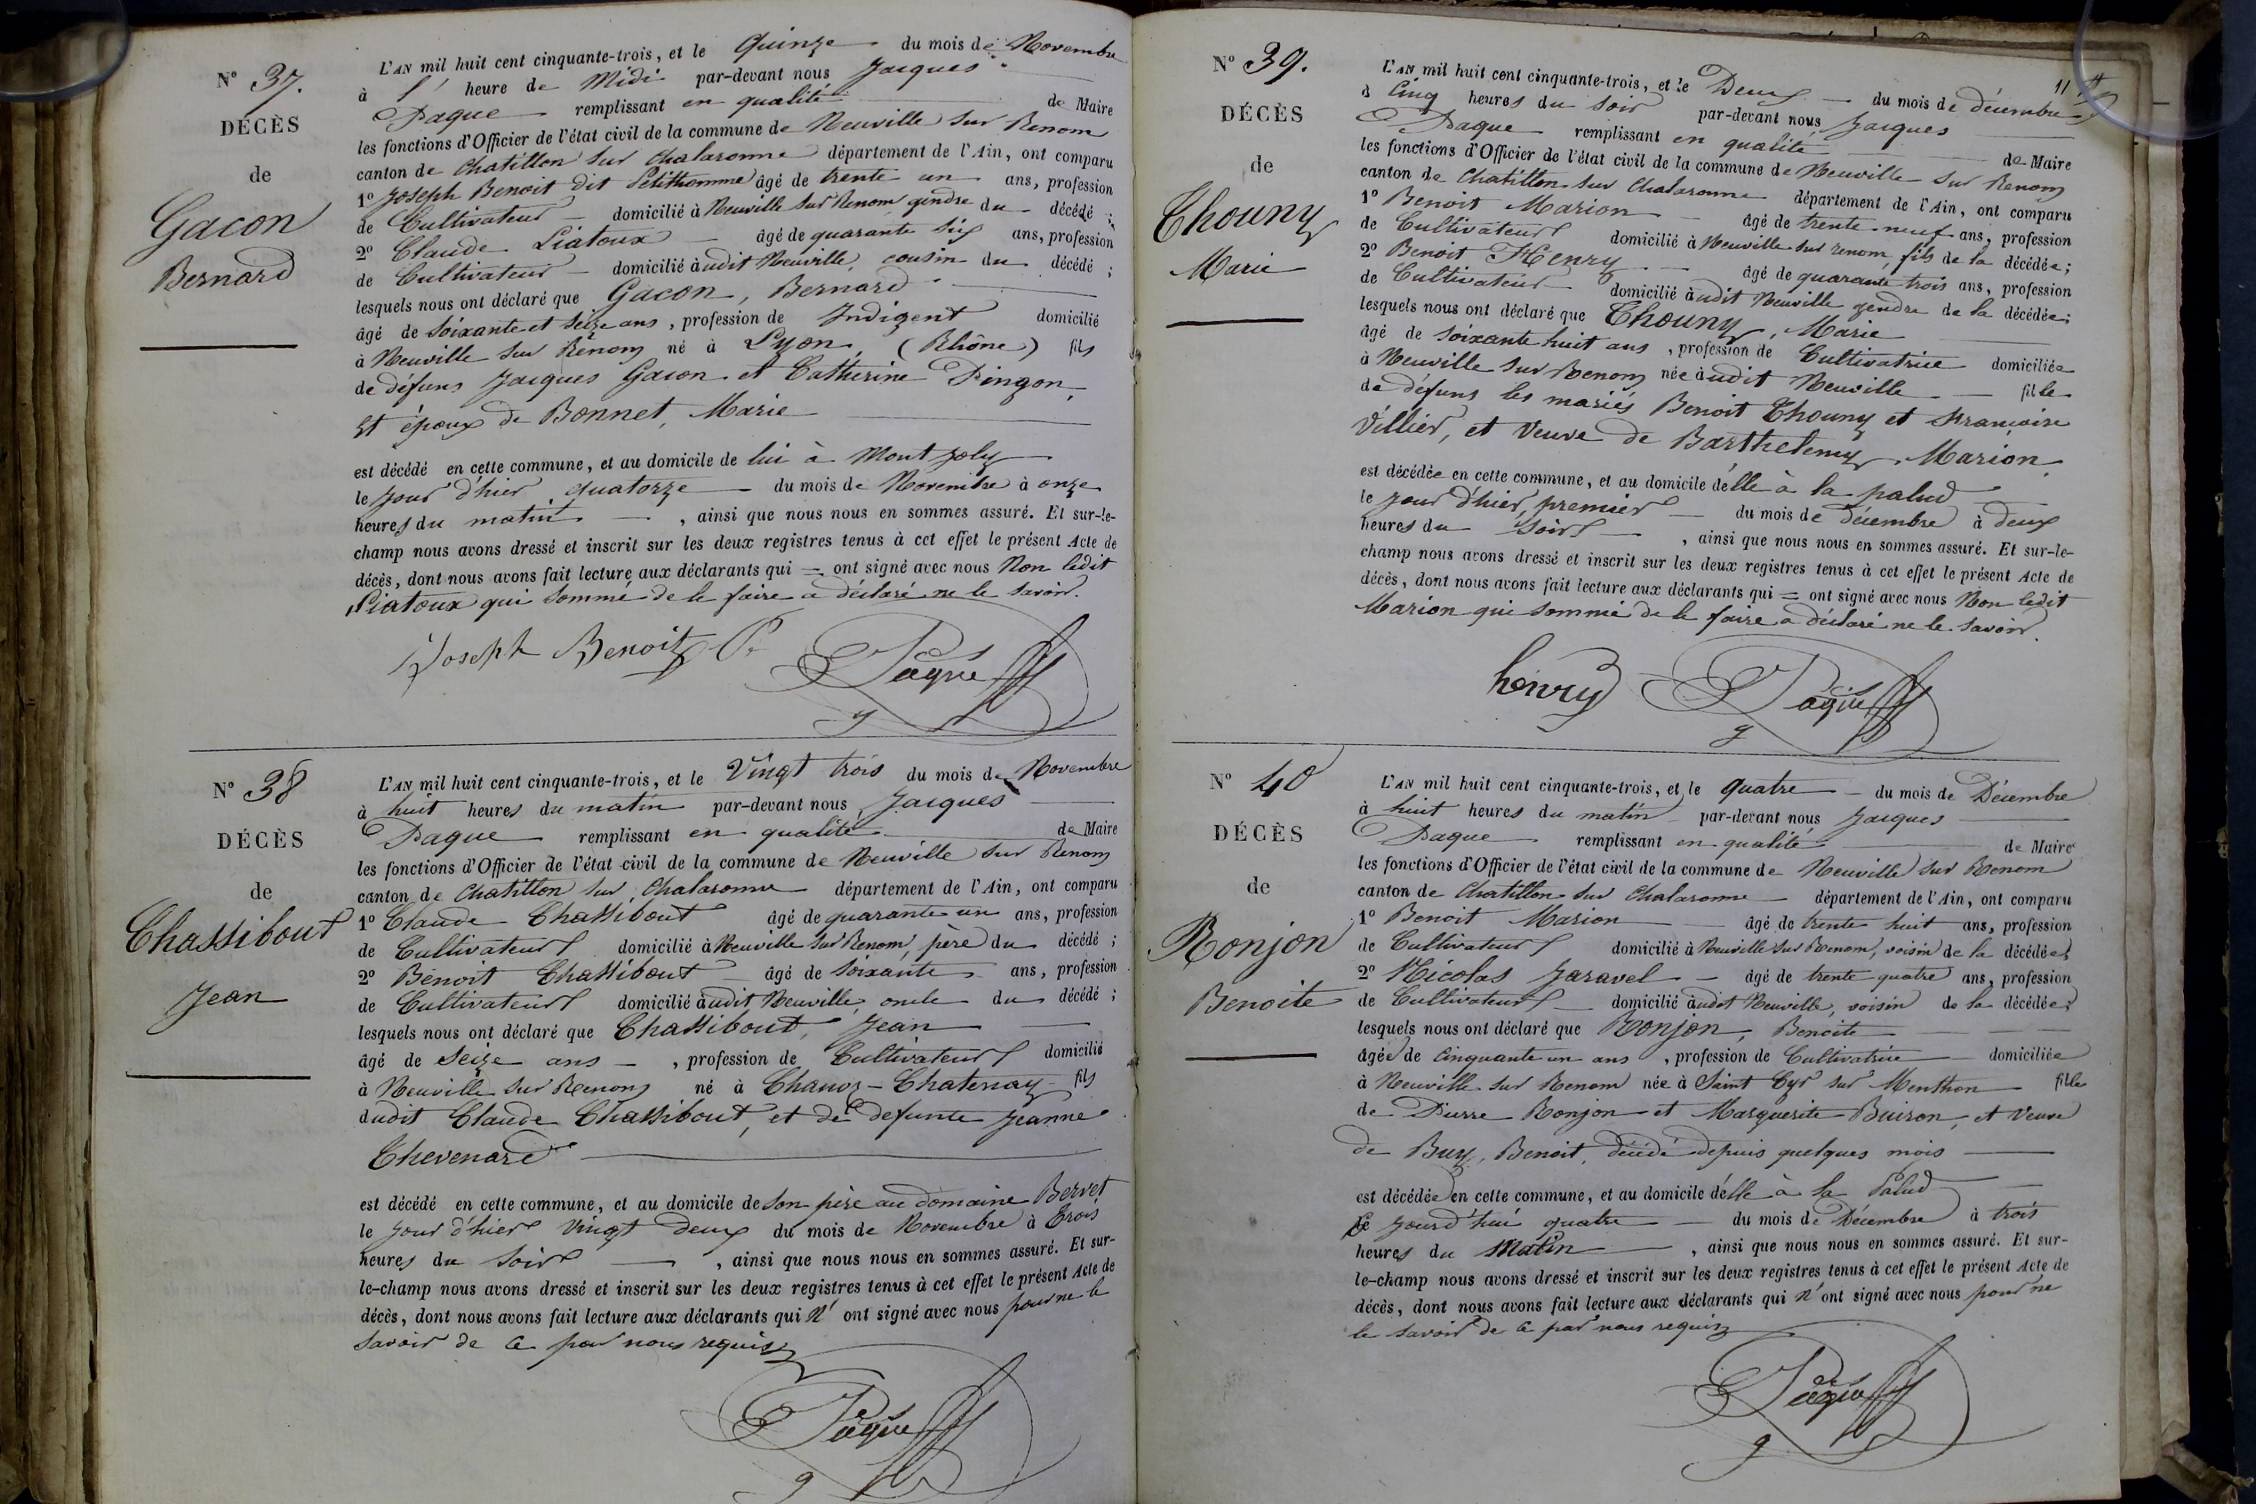 N° 37.
DÉCÈS
de
Gacon
Bernard
L'AN mil huit cent cinquante-trois, et le Quinze du mois de Novembre
à l' heure de Midi par-devant nous Jacques
Paque remplissant en qualité de Maire
les fonctions d'Officier de l'état civil de la commune de Neuville sur Renom
canton de Chatillon sur Chalaronne département de l'Ain, ont comparu
1° Joseph Benoit dit Petithomme âgé de trente un ans, profession
de Cultivateur domicilié à Neuville sur Renom gendre du décédé ;
2° Claude Liatoux âgé de quarante six ans, profession
de Cultivateur domicilié audit Neuville, cousin du décédé ;
lesquels nous ont déclaré que Gacon, Bernard
âgé de soixante et seize ans, profession de Indigent domicilié
à Neuville sur Renom né à Lyon (Rhône) fils
de défuns Jacques Gacon et Catherine Pingon,
et époux de Bonnet, Marie
est décédé en cette commune, et au domicile de lui à Mont Joly
le jour d'hier quatorze du mois de Novembre à onze
heures du matin, ainsi que nous nous en sommes assuré. Et sur-le-
champ nous avons dressé et inscrit sur les deux registres tenus à cet effet le présent Acte de
décès, dont nous avons fait lecture aux déclarants qui = ont signé avec nous Non ledit
Liatoux qui sommé de le faire a déclaré ne le savoir.
Joseph Benoit P. Paque
N° 38
DÉCÈS
de
Chassibout
Jean
L'AN mil huit cent cinquante-trois, et le Vingt trois du mois de Novembre
à huit heures du matin par-devant nous Jacques
Paque remplissant en qualité de Maire
les fonctions d'Officier de l'état civil de la commune de Neuville sur Renom
canton de Chatillon sur Chalaronne département de l'Ain, ont comparu
1° Claude Chassibout âgé de quarante un ans, profession
de Cultivateur domicilié à Neuville sur Renom, père du décédé ;
2° Benoit Chassibout âgé de soixante ans, profession
de Cultivateur domicilié audit Neuville, oncle du décédé ;
lesquels nous ont déclaré que Chassibout, Jean
âgé de Seize ans, profession de Cultivateur domicilié
à Neuville sur Renom né à Chanoz-Chatenay fils
dudit Claude Chassibout, et de défunte Jeanne
Chevenard
est décédé en cette commune, et au domicile de son père au domaine Bervet
le jour d'hier vingt deux du mois de Novembre à trois
heures du soir, ainsi que nous nous en sommes assuré. Et sur-
le-champ nous avons dressé et inscrit sur les deux registres tenus à cet effet le présent Acte de
décès, dont nous avons fait lecture aux déclarants qui n'ont signé avec nous pour ne le
savoir de ce par nous requis
Paque
11
N° 39.
DÉCÈS
de
Chouny
Marie
L'AN mil huit cent cinquante-trois, et le Deux du mois de décembre
à Cinq heures du soir par-devant nous Jacques
Paque remplissant en qualité de Maire
les fonctions d'Officier de l'état civil de la commune de Neuville sur Renom
canton de Chatillon sur Chalaronne département de l'Ain, ont comparu
1° Benoit Marion âgé de trente neuf ans, profession
de Cultivateur domicilié à Neuville sur renom, fils de la décédée ;
2° Benoit Henry âgé de quarante trois ans, profession
de Cultivateur domicilié audit Neuville gendre de la décédée ;
lesquels nous ont déclaré que Chouny, Marie
âgé de soixante huit ans, profession de Cultivatrice domiciliée
à Neuville sur Renom née audit Neuville fille
de défuns les mariés Benoit Chouny et Françoise
Villier, et Veuve de Barthelemy Marion
est décédée en cette commune, et au domicile d'elle à la palud
le jour d'hier, premier du mois de décembre à deux
heures du soir, ainsi que nous nous en sommes assuré. Et sur-le-
champ nous avons dressé et inscrit sur les deux registres tenus à cet effet le présent Acte de
décès, dont nous avons fait lecture aux déclarants qui = ont signé avec nous Non ledit
Marion qui sommé de le faire a déclaré ne le savoir.
henry Paque
N° 40
DÉCÈS
de
Ronjon
Benoite
L'AN mil huit cent cinquante-trois, et le quatre du mois de Décembre
à huit heures du matin par-devant nous Jacques
Paque remplissant en qualité de Maire
les fonctions d'Officier de l'état civil de la commune de Neuville sur Renom
canton de Chatillon sur Chalaronne département de l'Ain, ont comparu
1° Benoit Marion âgé de trente huit ans, profession
de Cultivateur domicilié à Neuville sur Renom, voisin de la décédée
2° Nicolas Jaravel âgé de trente quatre ans, profession
de Cultivateur domicilié audit Neuville, voisin de la décédée ;
lesquels nous ont déclaré que Ronjon, Benoite
âgée de cinquante un ans, profession de Cultivatrice domiciliée
à Neuville sur Renom née à Saint Cyr sur Menthon fille
de Pierre Ronjon et Marguerite Buiron, et Veuve
de Buy, Benoit, décédé depuis quelques mois
est décédée en cette commune, et au domicile d'elle à la Palud
le jourd'hui quatre du mois de Décembre à trois
heures du Matin, ainsi que nous nous en sommes assuré. Et sur-
le-champ nous avons dressé et inscrit sur les deux registres tenus à cet effet le présent Acte de
décès, dont nous avons fait lecture aux déclarants qui n'ont signé avec nous pour ne
le savoir de ce par nous requis
Paque